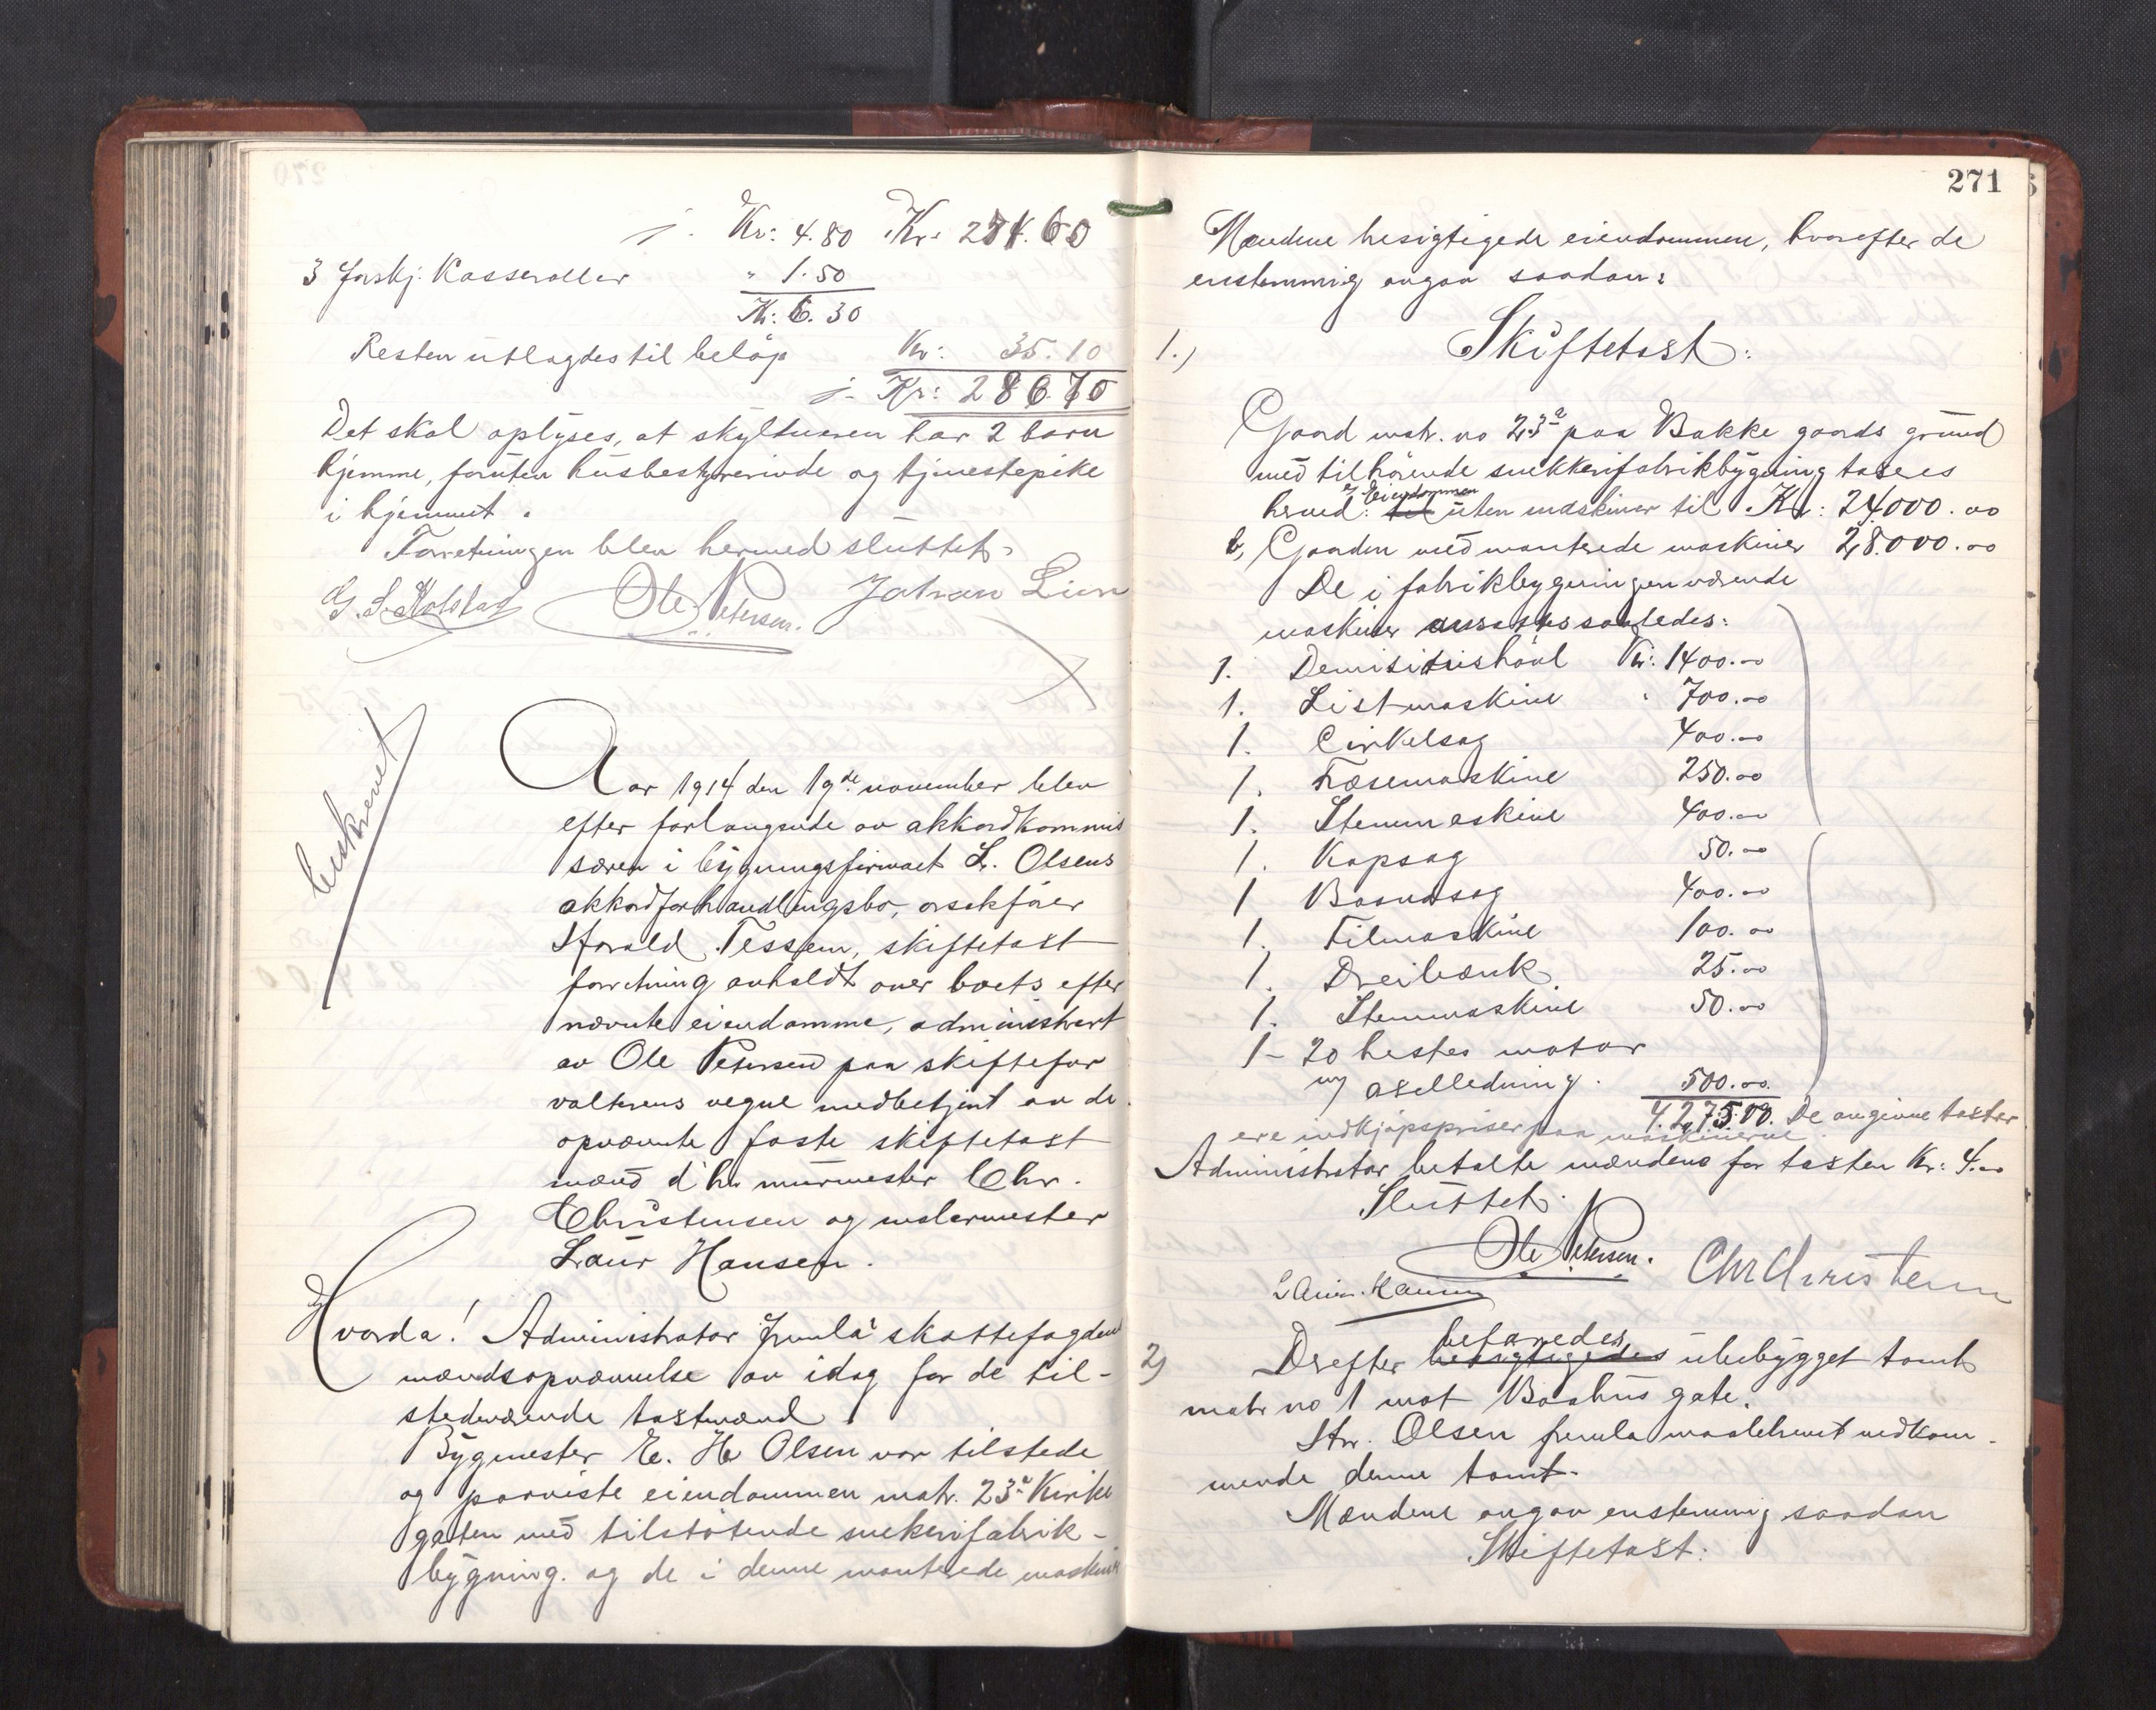 j. Kr: 4.80 Kr. 251.60
3 forskj. Kasseroller " 1.50
Kr: 6.30
Resten utlagdes til beløp Kr: 35.10
j. Kr: 286.70
Det skal oplyses, at skyldneren har 2 barn
hjemme, foruten husbestyrerinde og tjenestepike
i hjemmet.
Forretningen blev hermed sluttet.
Ole Petersen. Johan Lien
beskrevet
Aar 1914 den 19de november blev
efter forlangende av akkordkommis
særen i bygningsfirmaet L. Olsens
akkordforhandlingsbo, orsakfører
Harald Tessem, skiftetakst
forretning avholdt over boets efter
nævnte eiendomme, administrert
av Ole Petersen paa skiftefor
valterens vegne medbetjent av de
opnævnte faste skiftetakst
mænd d'hr murmester Chr.
Christensen og malermester
Laur Hansen.
Hvorda! Administrator fremla' skattefogdens
mændsopnævnelse av idag for de til-
stedeværende takstmænd.
Bygmester E. H. Olsen var tilstede
og paaviste eiendommen matr. 23a Kirke
gaten med tilstøtende snekerifabrik-
bygning og de i denne monterede maskiner
271
Mændene besigtigede eiendommen, hvorefter de
enstemmig avgav saadan:
1.) Skiftetakst:
Gaard matr. no 23a paa Bakke gaards grund
med tilhørende snekkerifabrikbygning takseres
herved: a, Eiendommen til uten maskiner til Kr: 24000.00
b, Gaarden med monterede maskiner 28.000.00
De i fabrikbygningen værende
maskiner ansættes saaledes:
1. Høvl Kr: 1400.00
1. Listmaskine " 700.00
1. Cirkelsag 400.00
1. Fræsemaskine 250.00
1. Stemmaskine 400.00
1. Kapsag 50.00
1 Baandsag 400.00
1. Filmaskine 100.00
1. Dreibænk 25.00
1. Stemmaskine 50.00
1 - 20 hestes motor
m/ akselledning. 500.00
4.275.00. De angivne takster
ere indkjøpspriser paa maskinerne.
Administrator betalte mændene for taksten Kr: 4.00
Sluttet.
Ole Petersen. Chr Christensen
Laur. Hansen
2) Derefter besigtigedes befaredes ubebygget tomt
matr no 1 mot Baahus gate.
Hr. Olsen fremla maalebrevet vedkom-
mende denne tomt.
Mændene avgav enstemmig saadan
Skiftetakst: